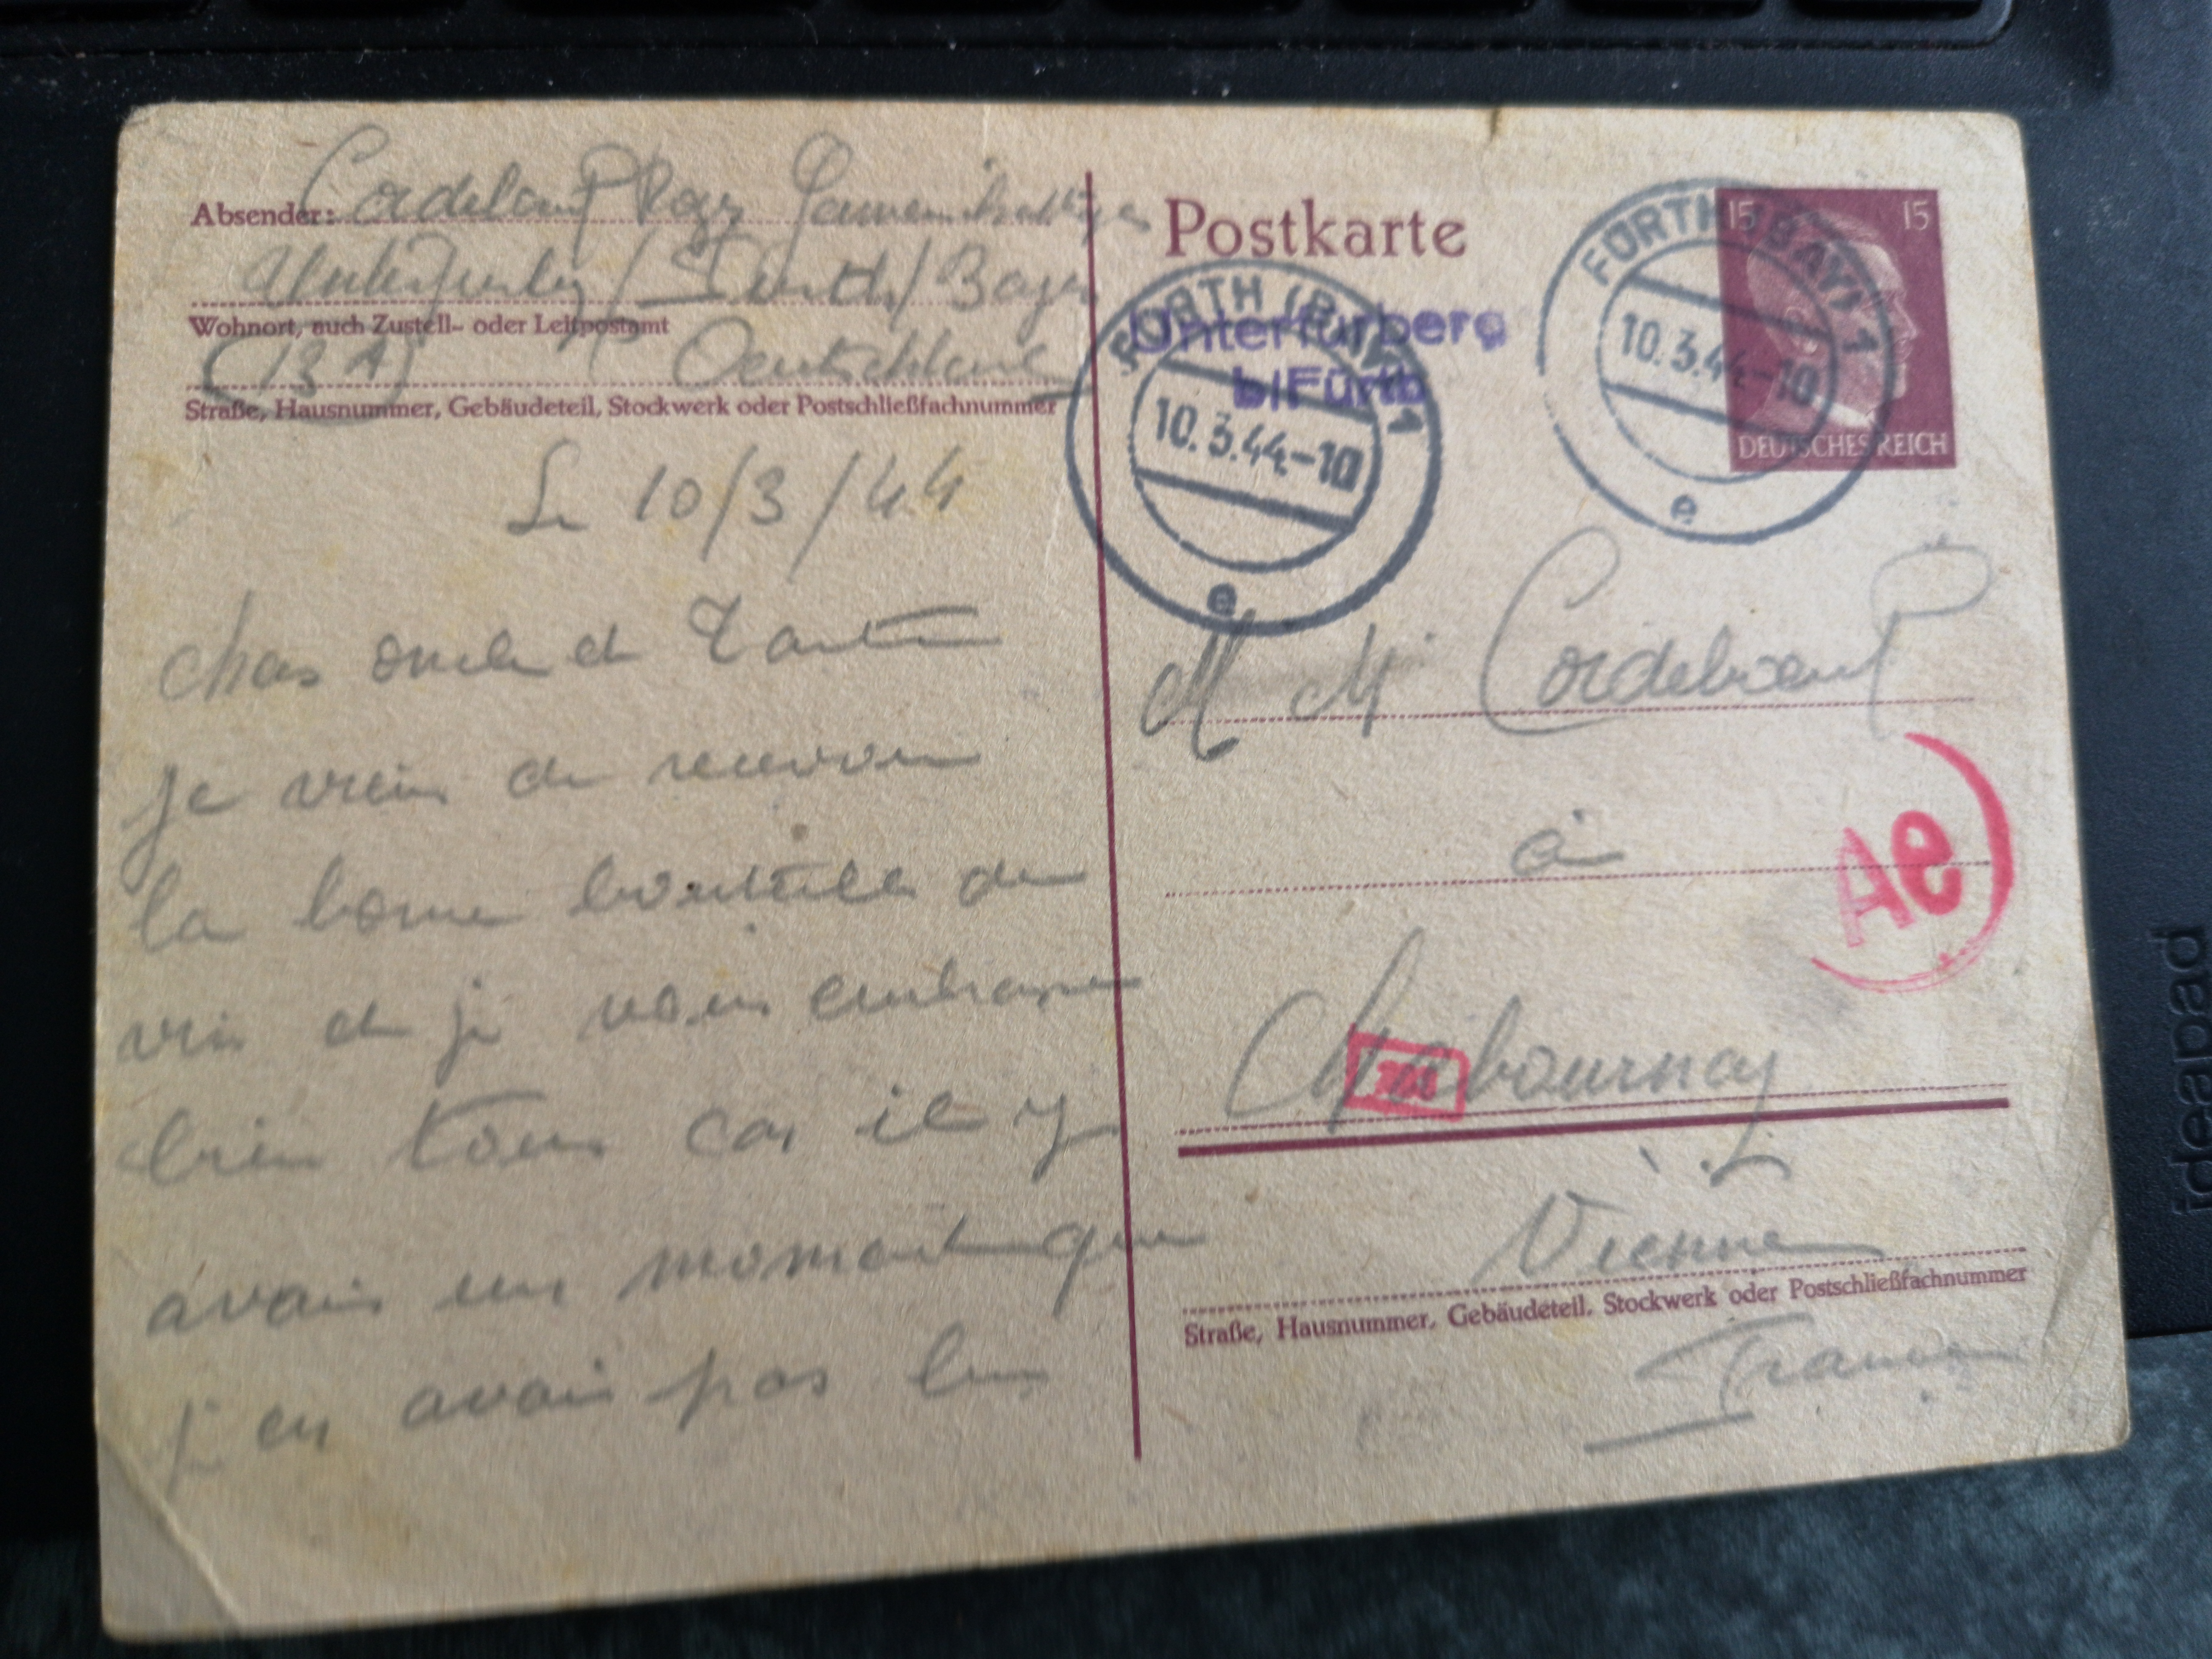 Absender: Cordeboeuf Roger
Unterfürberg / Fürth / Bayern
Wohnort, auch Zustell- oder Leitpostamt
(13A) Deutschland
Straße, Hausnummer, Gebäudeteil, Stockwerk oder Postschließfachnummer
Le 10/3/44
chers oncle et Tante
je viens de recevoir
la bonne bouteille de
vin et je vous embrasse
bien tous car il y
avais un moment que
j'en avais pas bu
Postkarte
FÜRTH (BAY) 1
10.3.44-10
e
Unterfürberg
b/Fürth
FÜRTH (BAY) 1
10.3.44-10
e
15 15
DEUTSCHES REICH
M Mr Cordeboeuf
à
Ae
Chabournay
Vienne
Straße, Hausnummer, Gebäudeteil, Stockwerk oder Postschließfachnummer
France
ideapad